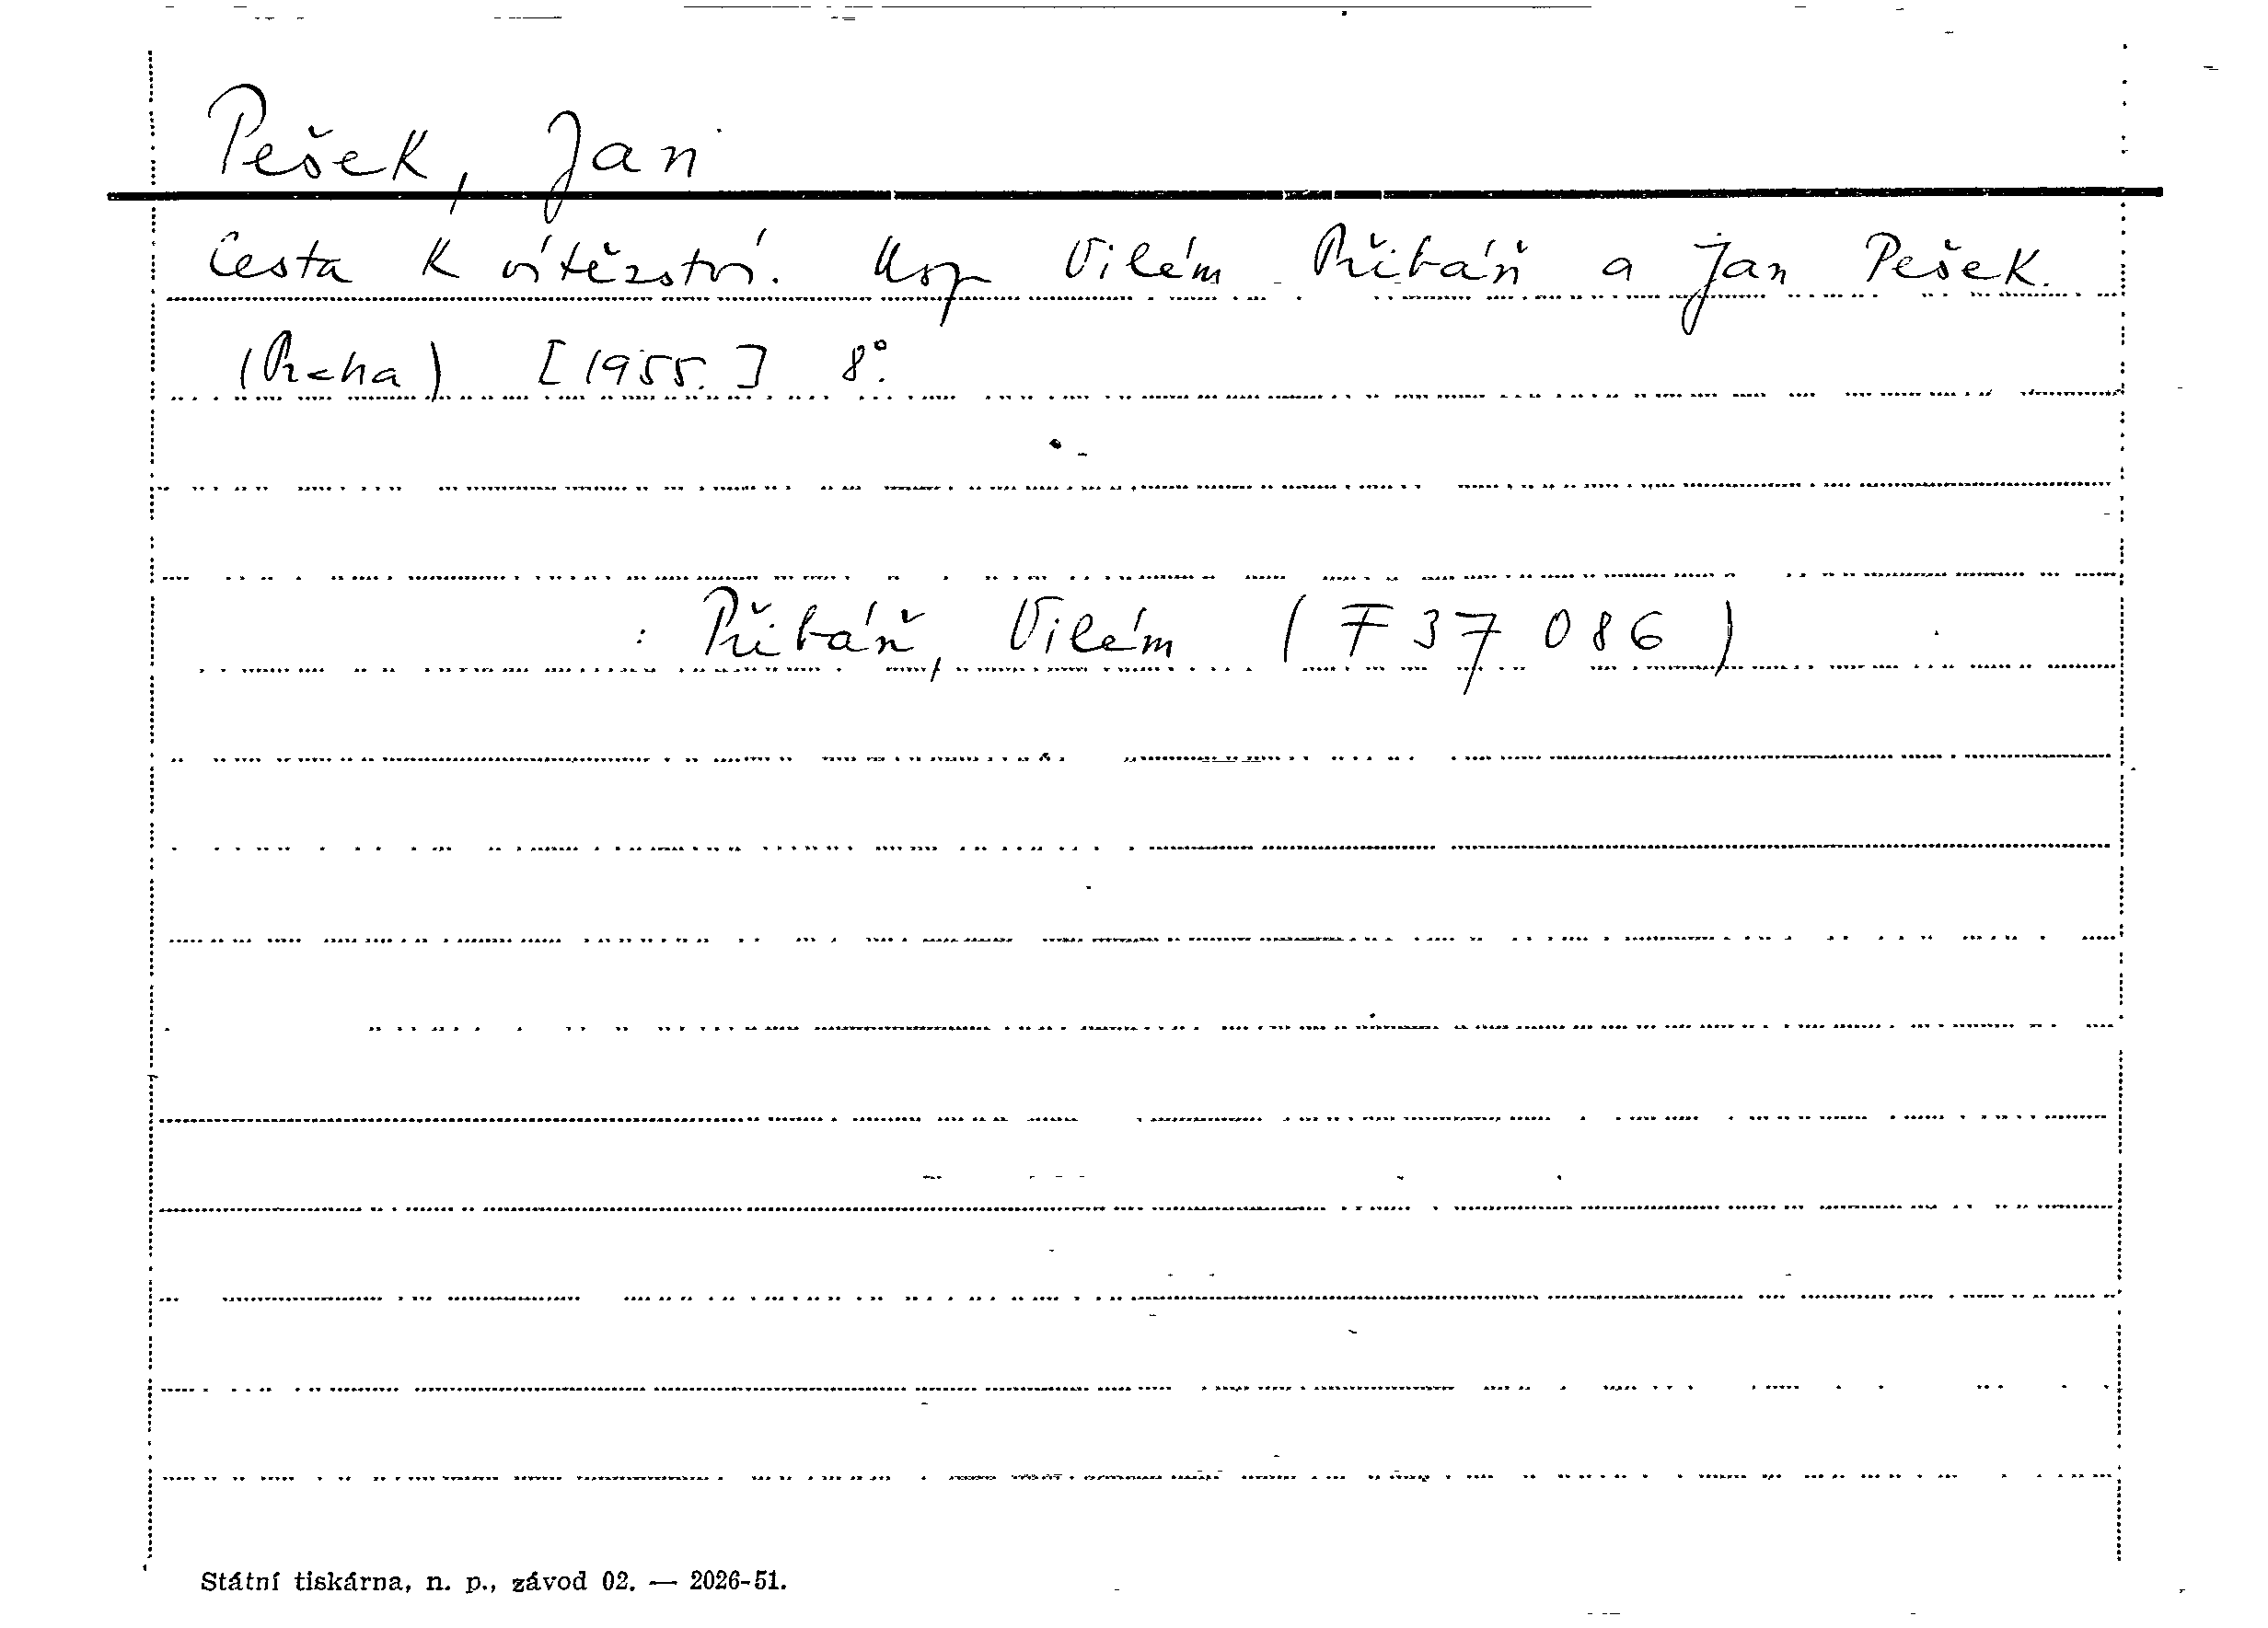 Pešek, Jan
Cesta k vítězství. Usp Vilém Přibáň a Jan Pešek.
(Praha) [1955.] 8°.
: Přibáň, Vilém (F 37 086)
Státní tiskárna, n. p., závod 02. — 2026-51.